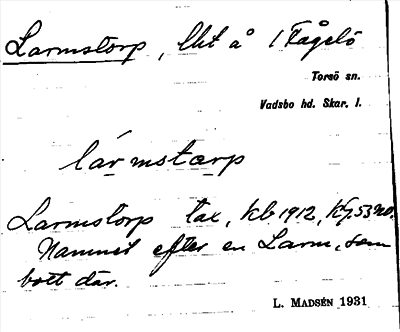 Larmstorp, lht å 1 Fågelö
Torsö sn.
Vadsbo hd. Skar. l.
lár mstærp
Larmstorp tax, Kb 1912, Kj. 53 no.
Namnet efter en Larm, som
bott där.
L. MADSÉN 1931